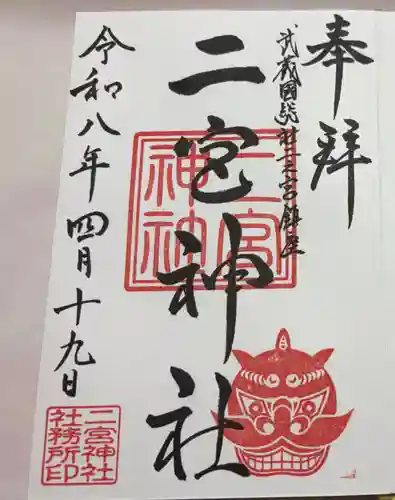 奉拝
武蔵國総社二之宮鎮座
二宮神社
令和八年四月十九日
二宮神社
二宮神社
社務所印